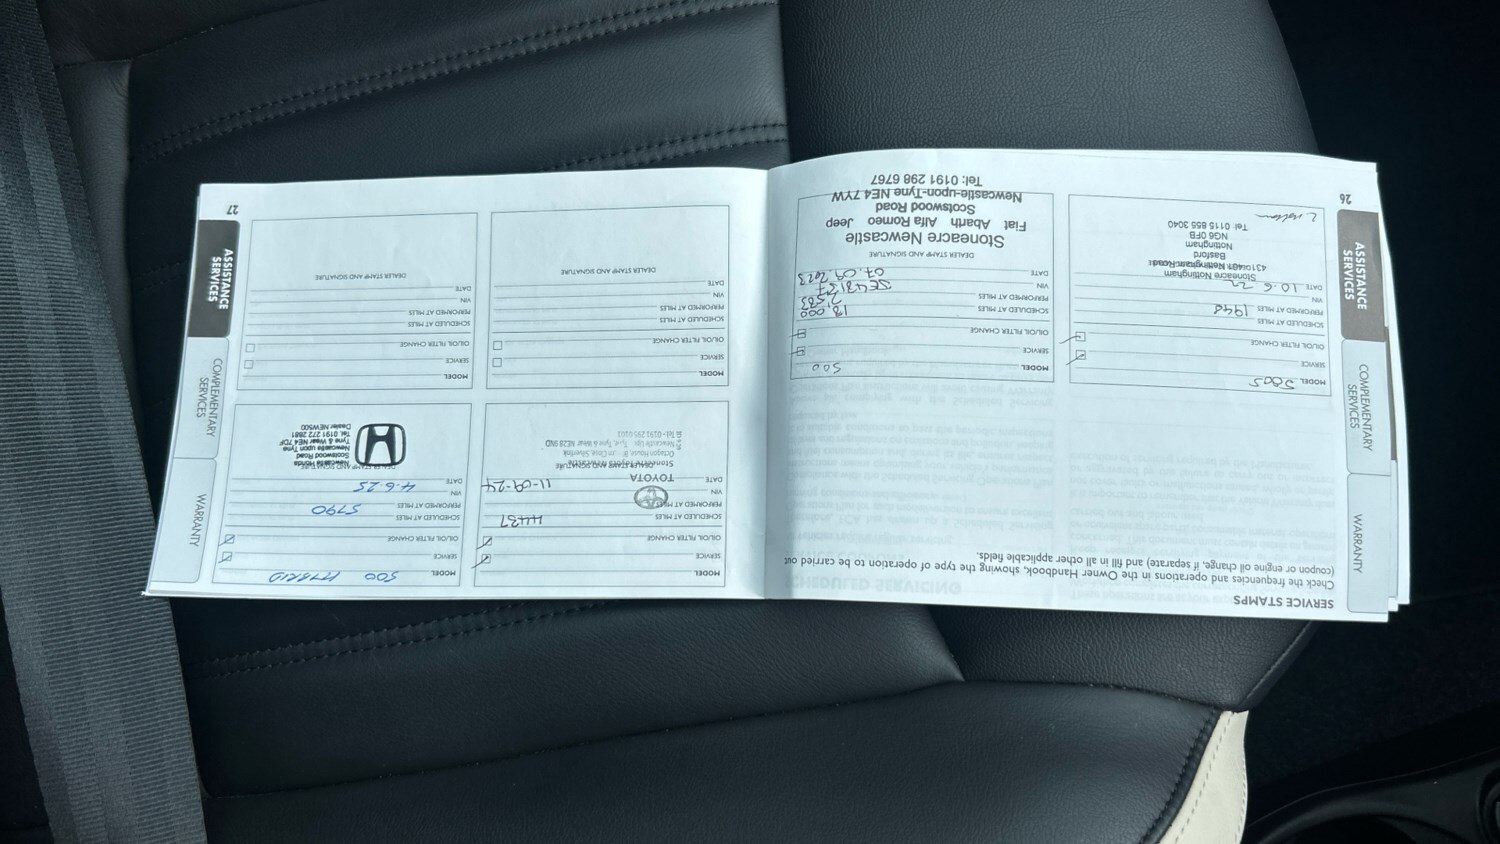 26
ASSISTANCE
SERVICES
COMPLEMENTARY
SERVICES
WARRANTY
SERVICE STAMPS
Check the frequencies and operations in the Owner Handbook, showing the type of operation to be carried out
(coupon or engine oil change, if separate) and fill in all other applicable fields.
SCHEDULED SERVICING
MODEL 500S
SERVICE
OIL/OIL FILTER CHANGE
SCHEDULED AT MILES
PERFORMED AT MILES 1948
VIN
DATE 10.6.22
Stoneacre Nottingham
Nottingham Road
Basford
Nottingham
NG6 0FB
Tel: 0115 855 3040
MODEL 500
SERVICE
OIL/OIL FILTER CHANGE
SCHEDULED AT MILES 18,000
PERFORMED AT MILES 2,585
VIN
DATE 07.09.2023
DEALER STAMP AND SIGNATURE
Stoneacre Newcastle
Fiat Abarth Alfa Romeo Jeep
Scotswood Road
Newcastle-upon-Tyne NE4 7YW
Tel: 0191 298 6767
MODEL
SERVICE
OIL/OIL FILTER CHANGE
SCHEDULED AT MILES 4437
PERFORMED AT MILES
VIN
TOYOTA
DATE 11-09-24
DEALER STAMP AND SIGNATURE
Stoneacre Toyota Newcastle
Octagon House, Silverlink
NE28 9ND
Tel: 0191 295 0101
MODEL 500 HYBRID
SERVICE
OIL/OIL FILTER CHANGE
SCHEDULED AT MILES
PERFORMED AT MILES 5790
VIN
DATE 4.6.25
DEALER STAMP AND SIGNATURE
Newcastle Honda
Scotswood Road
Newcastle upon Tyne
Tyne & Wear NE4 7DF
Tel. 0191 272 2881
Dealer NEW500
MODEL
SERVICE
OIL/OIL FILTER CHANGE
SCHEDULED AT MILES
PERFORMED AT MILES
VIN
DATE
DEALER STAMP AND SIGNATURE
MODEL
SERVICE
OIL/OIL FILTER CHANGE
SCHEDULED AT MILES
PERFORMED AT MILES
VIN
DATE
DEALER STAMP AND SIGNATURE
27
ASSISTANCE
SERVICES
COMPLEMENTARY
SERVICES
WARRANTY